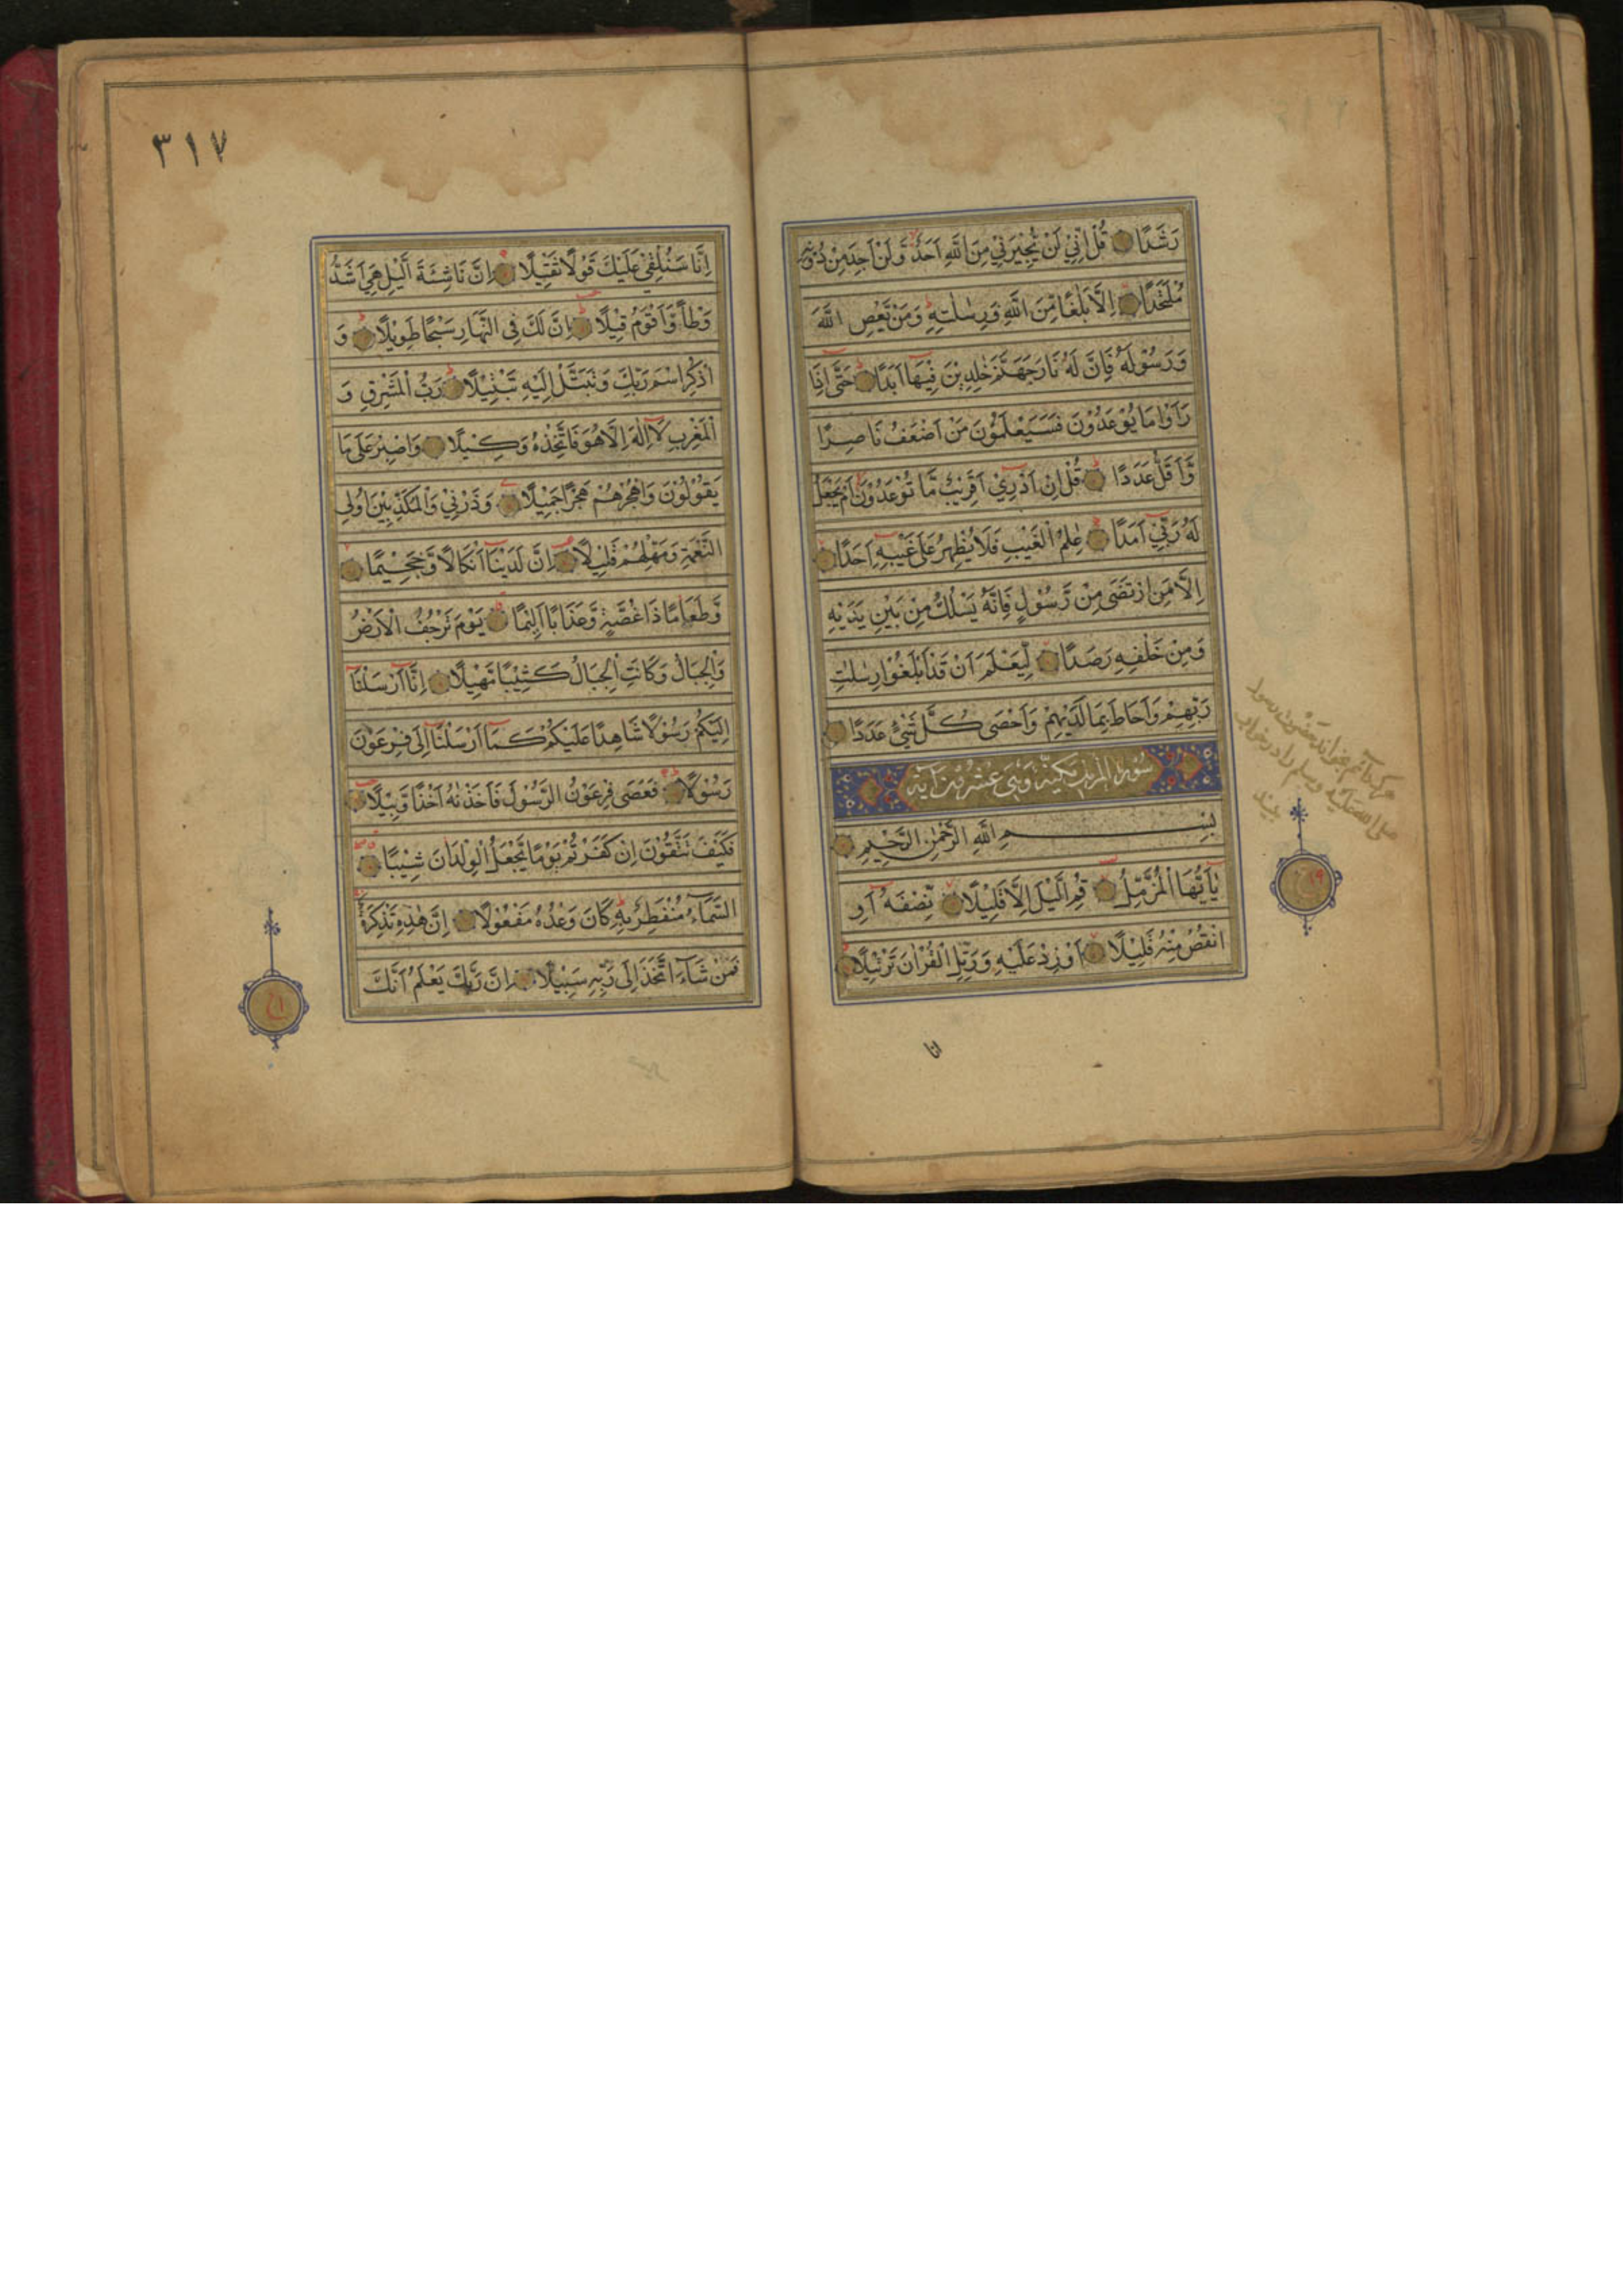 رَشَدًا قُلْ اِنِّيْ لَنْ يُّجِيْرَنِيْ مِنَ اللّٰهِ اَحَدٌ وَّلَنْ اَجِدَ مِنْ دُوْنِهٖ
مُلْتَحَدًا اِلَّا بَلٰغًا مِّنَ اللّٰهِ وَرِسٰلٰتِهٖ وَمَنْ يَّعْصِ اللّٰهَ
وَرَسُوْلَهٗ فَاِنَّ لَهٗ نَارَ جَهَنَّمَ خٰلِدِيْنَ فِيْهَا اَبَدًا حَتّٰى اِذَا
رَاَوْا مَا يُوْعَدُوْنَ فَسَيَعْلَمُوْنَ مَنْ اَضْعَفُ نَاصِرًا
وَّاَقَلُّ عَدَدًا قُلْ اِنْ اَدْرِيْ اَقَرِيْبٌ مَّا تُوْعَدُوْنَ اَمْ يَجْعَلُ
لَهٗ رَبِّيْ اَمَدًا عٰلِمُ الْغَيْبِ فَلَا يُظْهِرُ عَلٰى غَيْبِهٖ اَحَدًا
اِلَّا مَنِ ارْتَضٰى مِنْ رَّسُوْلٍ فَاِنَّهٗ يَسْلُكُ مِنْ بَيْنِ يَدَيْهِ
وَمِنْ خَلْفِهٖ رَصَدًا لِّيَعْلَمَ اَنْ قَدْ اَبْلَغُوْا رِسٰلٰتِ
رَبِّهِمْ وَاَحَاطَ بِمَا لَدَيْهِمْ وَاَحْصٰى كُلَّ شَيْءٍ عَدَدًا
سورة المزمل مكية وهي عشرون آية
بِسْمِ اللّٰهِ الرَّحْمٰنِ الرَّحِيْمِ
يٰاَيُّهَا الْمُزَّمِّلُ قُمِ الَّيْلَ اِلَّا قَلِيْلًا نِّصْفَهٗ اَوِ
انْقُصْ مِنْهُ قَلِيْلًا اَوْ زِدْ عَلَيْهِ وَرَتِّلِ الْقُرْاٰنَ تَرْتِيْلًا
انا
صلى الله عليه وسلم را در خواب
بيند
٣١٧
اِنَّا سَنُلْقِيْ عَلَيْكَ قَوْلًا ثَقِيْلًا اِنَّ نَاشِئَةَ الَّيْلِ هِيَ اَشَدُّ
وَطْأً وَّاَقْوَمُ قِيْلًا اِنَّ لَكَ فِى النَّهَارِ سَبْحًا طَوِيْلًا وَ
اذْكُرِ اسْمَ رَبِّكَ وَتَبَتَّلْ اِلَيْهِ تَبْتِيْلًا رَبُّ الْمَشْرِقِ وَ
الْمَغْرِبِ لَا اِلٰهَ اِلَّا هُوَ فَاتَّخِذْهُ وَكِيْلًا وَاصْبِرْ عَلٰى مَا
يَقُوْلُوْنَ وَاهْجُرْهُمْ هَجْرًا جَمِيْلًا وَذَرْنِيْ وَالْمُكَذِّبِيْنَ اُولِى
النَّعْمَةِ وَمَهِّلْهُمْ قَلِيْلًا اِنَّ لَدَيْنَا اَنْكَالًا وَّجَحِيْمًا
وَّطَعَامًا ذَا غُصَّةٍ وَّعَذَابًا اَلِيْمًا يَوْمَ تَرْجُفُ الْاَرْضُ
وَالْجِبَالُ وَكَانَتِ الْجِبَالُ كَثِيْبًا مَّهِيْلًا اِنَّا اَرْسَلْنَا
اِلَيْكُمْ رَسُوْلًا شَاهِدًا عَلَيْكُمْ كَمَا اَرْسَلْنَا اِلٰى فِرْعَوْنَ
رَسُوْلًا فَعَصٰى فِرْعَوْنُ الرَّسُوْلَ فَاَخَذْنٰهُ اَخْذًا وَّبِيْلًا
فَكَيْفَ تَتَّقُوْنَ اِنْ كَفَرْتُمْ يَوْمًا يَّجْعَلُ الْوِلْدَانَ شِيْبًا
السَّمَاءُ مُنْفَطِرٌ بِهٖ كَانَ وَعْدُهٗ مَفْعُوْلًا اِنَّ هٰذِهٖ تَذْكِرَةٌ
فَمَنْ شَاءَ اتَّخَذَ اِلٰى رَبِّهٖ سَبِيْلًا اِنَّ رَبَّكَ يَعْلَمُ اَنَّكَ